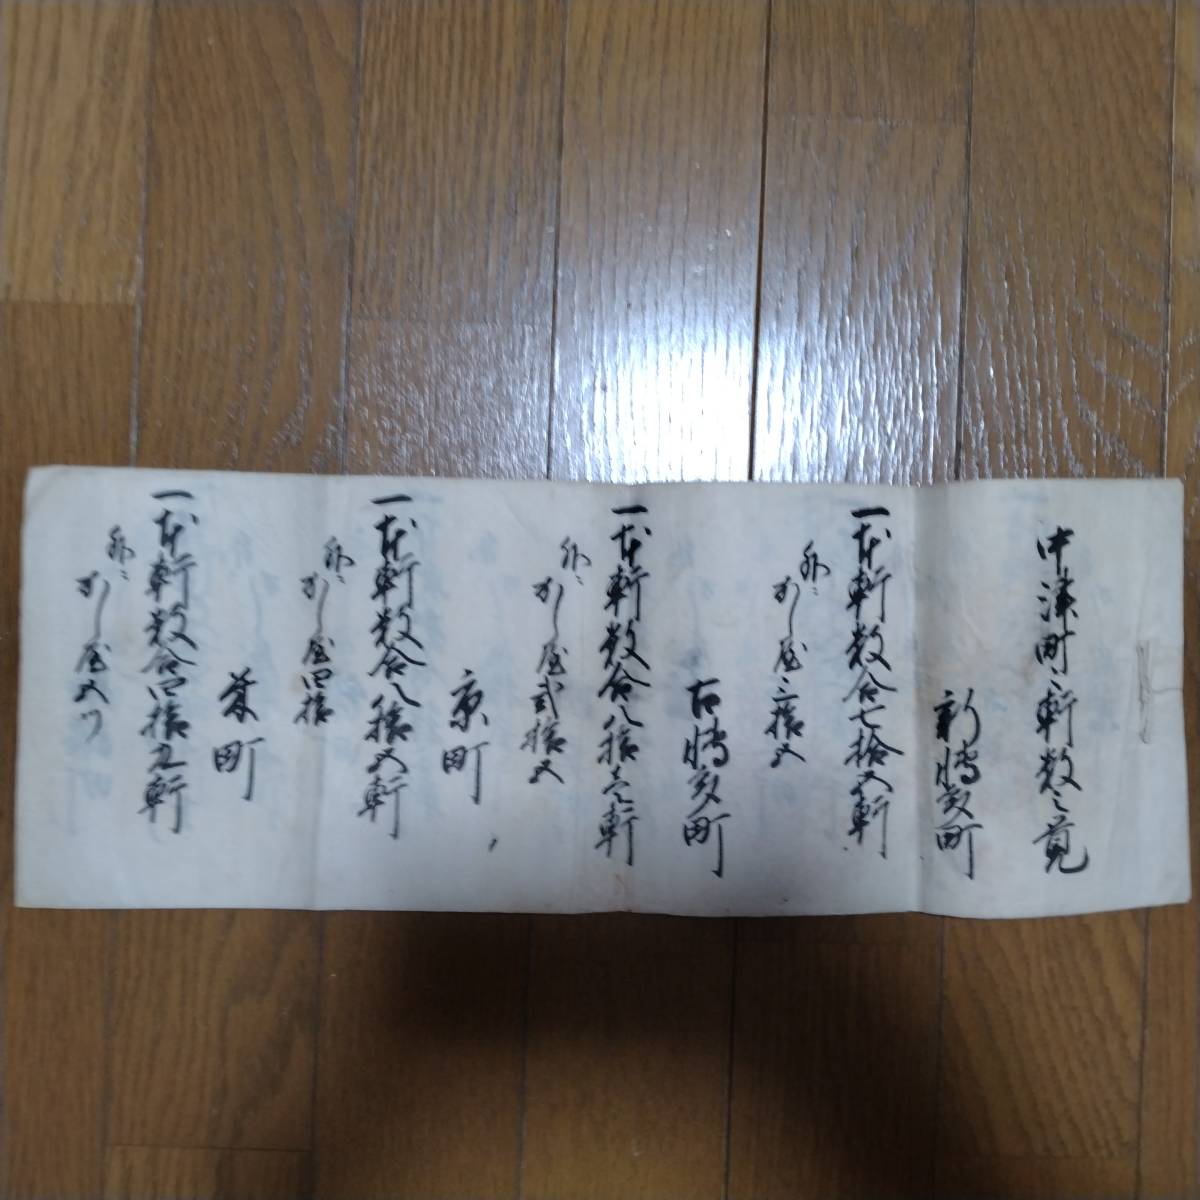 中津町ニ軒数之覚
新博多町
一本軒数合七拾五軒
外ニかし屋三拾五
古博多町
一本軒数合八拾壱軒
外ニかし屋弐拾五
京町
一本軒数合八拾五軒
外ニかし屋四拾
町
一本軒数合四拾九軒
外ニかし屋五ツ